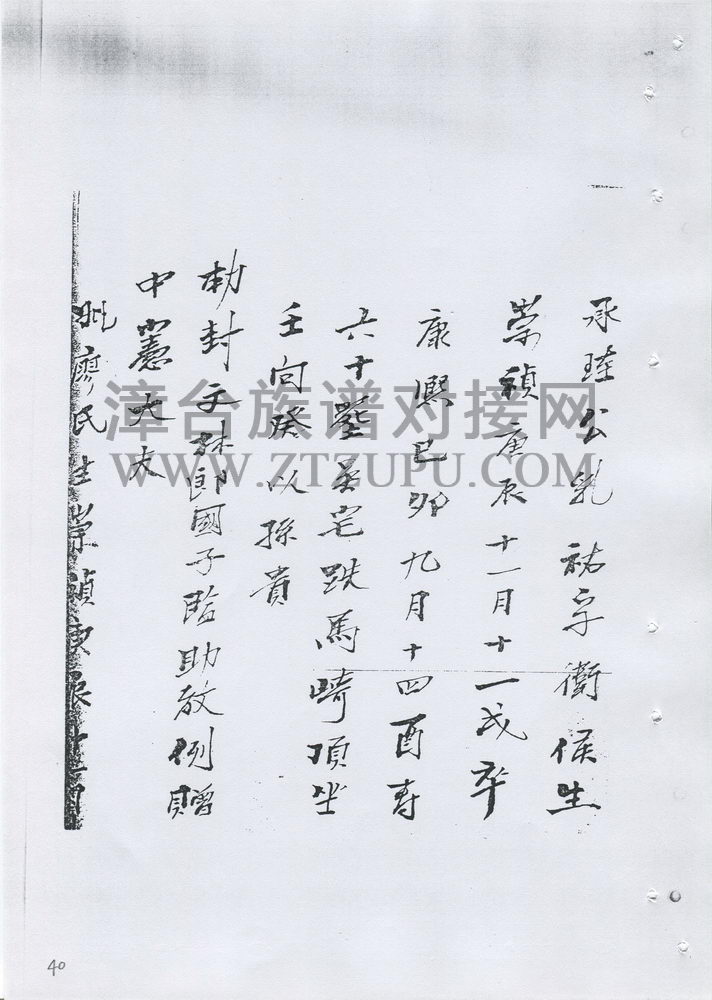 承瑾公乳祐字衛侯生
崇禎庚辰十一月十一戌卒
康熙己卯九月十四酉壽
六十塟吾宅跌馬崎頂坐
壬向癸以孫貴
勅封文林郎國子監助教例贈
中憲大夫
妣廖氏生崇禎庚辰
漳台族谱对接网
WWW.ZTZUPU.COM
40